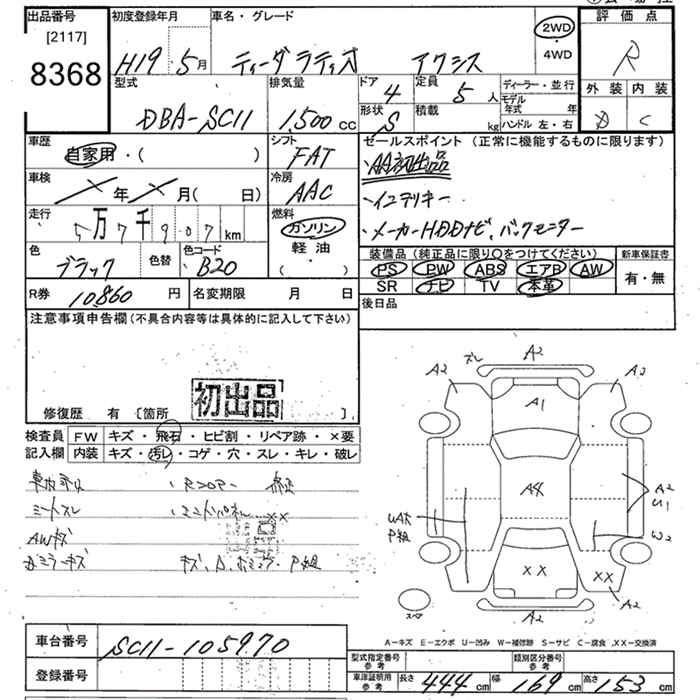 出品番号
[2117]
8368
初度登録年月
H19. 5月
車名・グレード
ティーダラティオ アクシス
2WD
・
4WD
評価点
R
外装 内装
D C
型式
DBA-SC11
排気量
1,500 cc
ドア
4
定員
5 人
形状
S
積載
kg
ディーラー・並行
モデル年式 年
ハンドル 左・右
車歴
自家用・( )
シフト
FAT
セールスポイント (正常に機能するものに限ります)
AA初出品
・インテリキー
・メーカーHDDナビ、バックモニター
車検
年 月( 日)
冷房
AAC
走行
5万7千907 km
燃料
ガソリン
軽油
・( )
色
ブラック
色替
色コード
B20
装備品 (純正品に限り○をつけてください)
PS PW ABS エアB AW
SR ナビ TV 本革
新車保証書
有・無
R券 10860 円
名変期限 月 日
後日品
注意事項申告欄 (不具合内容等は具体的に記入して下さい)
初出品
修復歴 有 [箇所 ].
検査員記入欄
FW キズ・飛石・ヒビ割・リペア跡・×要
内装 キズ・汚レ・コゲ・穴・スレ・キレ・破レ
シートスレ
AWキズ
ズレ A2
A2 A2
A1
A4
A2
U1
W2
P組
XX XX
A2 A2
スペア
A-キズ E-エクボ U-凹み W-補修跡 S-サビ C-腐食 XX-交換済
車台番号 SC11-105970
登録番号
型式指定番号 参考
類別区分番号 参考
車庫証明用 参考
長さ 444 cm 幅 169 cm 高さ 153 cm